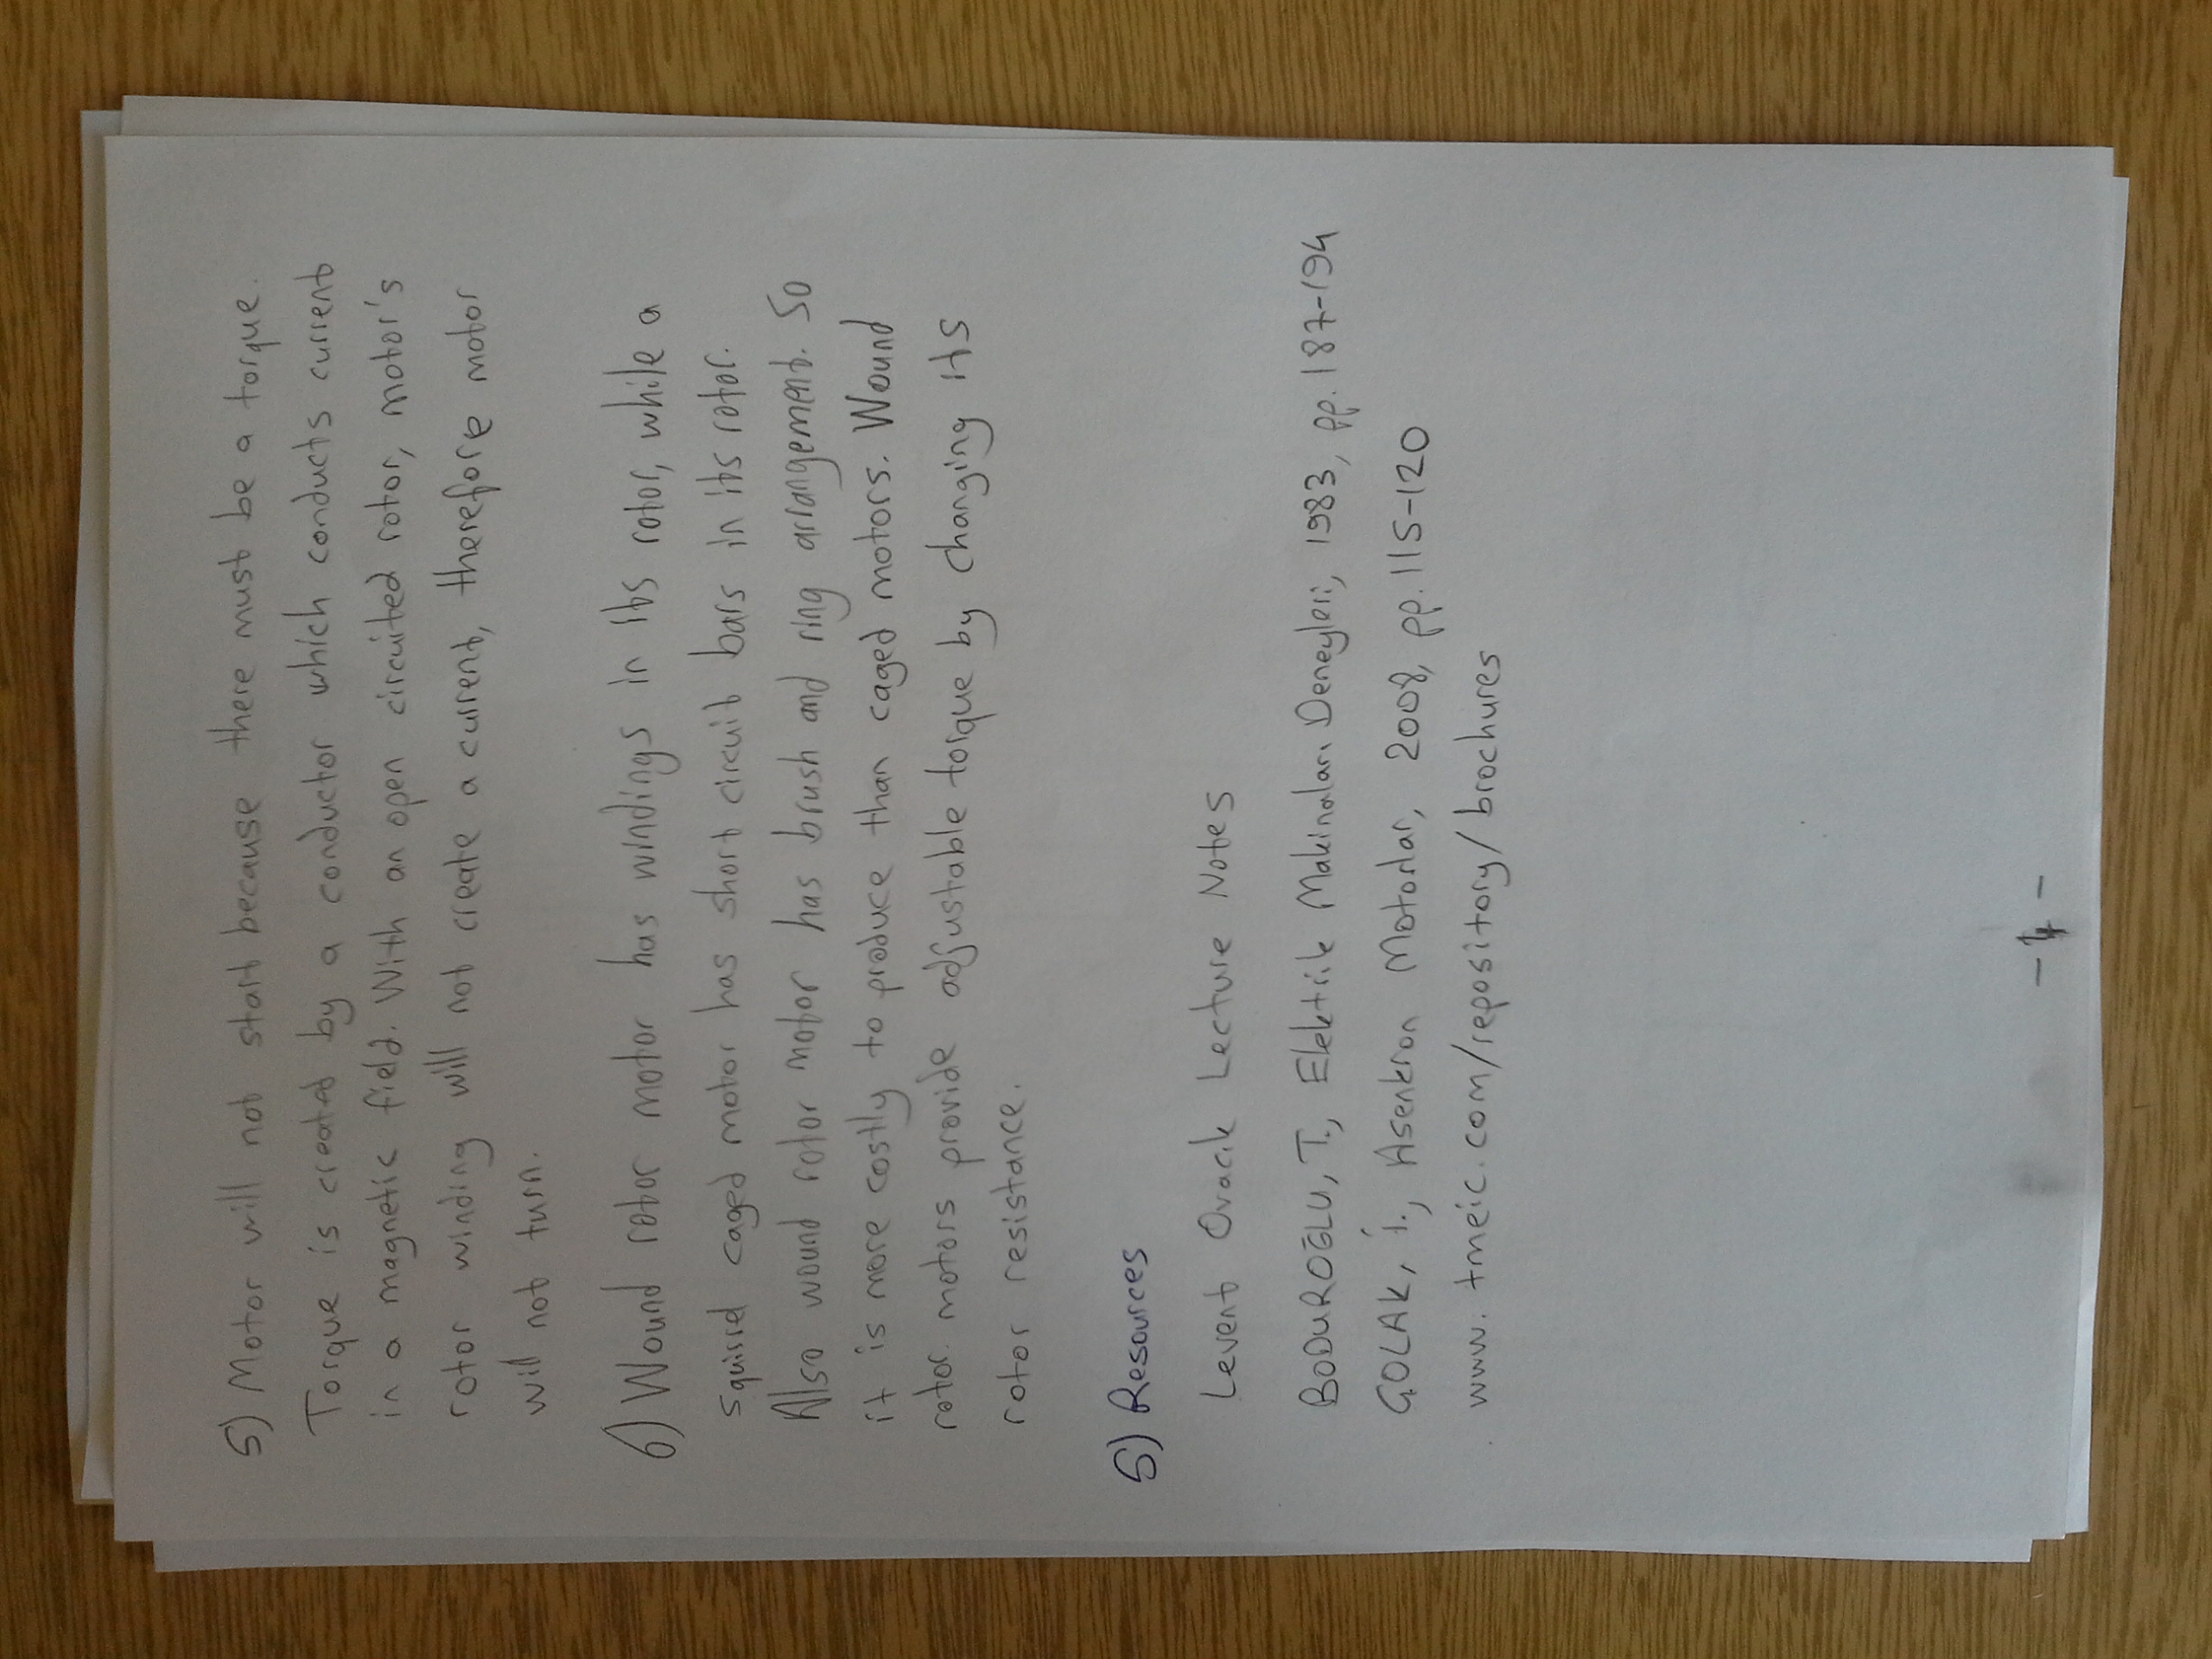 5) Motor will not start because there must be a torque.
Torque is created by a conductor which conducts current
in a magnetic field. With an open circuited rotor, motor's
rotor winding will not create a current, therefore motor
will not turn.
6) Wound rotor motor has windings in its rotor, while a
squirrel caged motor has short circuit bars in its rotor.
Also wound rotor motor has brush and ring arrangement. So
it is more costly to produce than caged motors. Wound
rotor motors provide adjustable torque by changing its
rotor resistance.
5) Resources
Levent Ovacık Lecture Notes
BODUROĞLU, T., Elektrik Makinaları Deneyleri, 1983, pp. 187-194
ÇOLAK, İ., Asenkron Motorlar, 2008, pp. 115-120
www.tmeic.com/repository/brochures
- 4 -